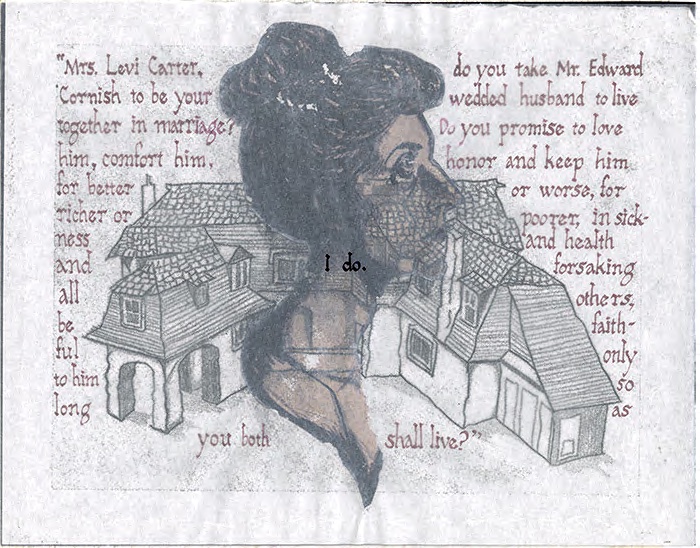 "Mrs. Levi Carter, do you take Mr. Edward
Cornish to be your wedded husband to live
together in marriage? Do you promise to love
him, comfort him, honor and keep him
for better or worse, for
richer or poorer, in sick-
ness and health
and forsaking
all others,
be faith-
ful only
to him so
long as
you both shall live?"
I do.